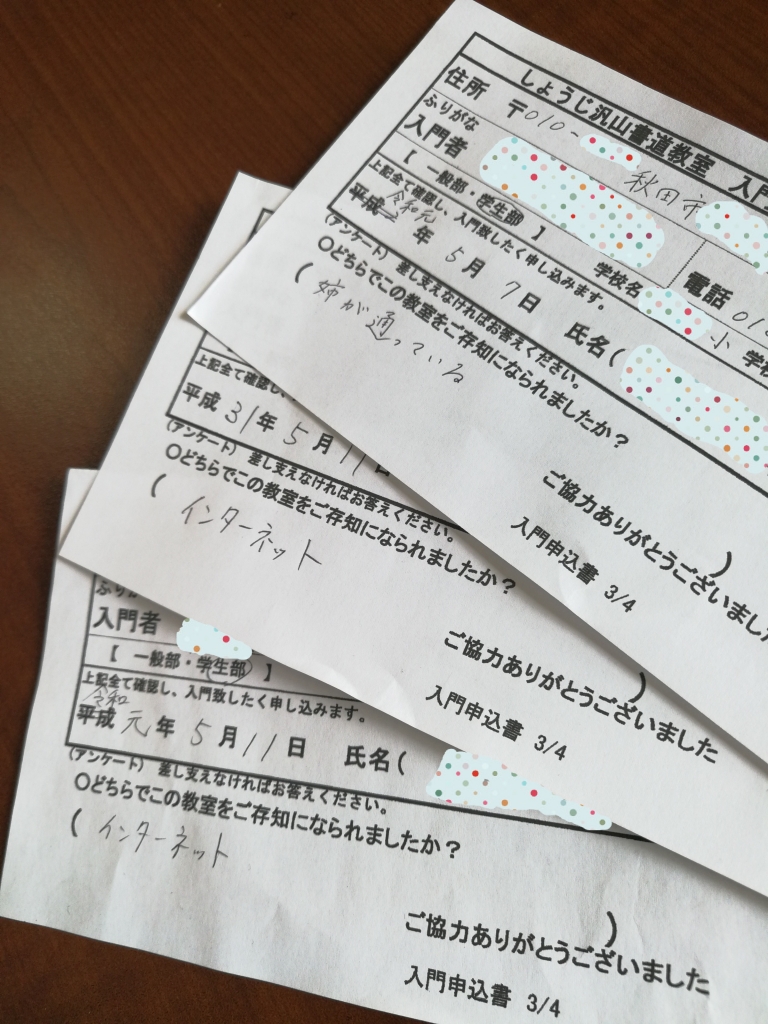 しょうじ汎山書道教室 入門
住所 〒010-
秋田市
ふりがな
入門者
電話 01
【 一般部・学生部 】 学校名 小 学校
上記全て確認し、入門致したく申し込みます。
令和元
平成 年 5月 7日 氏名(
(アンケート) 差し支えなければお答えください。
○どちらでこの教室をご存知になられましたか?
( 姉が通っている )
ご協力ありがとうございました
入門申込書 3/4
上記全て確認し、
平成 31年 5月 11日
(アンケート) 差し支えなければお答えください。
○どちらでこの教室をご存知になられましたか?
( インターネット )
ご協力ありがとうございました
入門申込書 3/4
ふりが
入門者
【 一般部・学生部 】
上記全て確認し、入門致したく申し込みます。
令和
平成 元年 5月 11日 氏名(
(アンケート) 差し支えなければお答えください。
○どちらでこの教室をご存知になられましたか?
( インターネット )
ご協力ありがとうございました
入門申込書 3/4